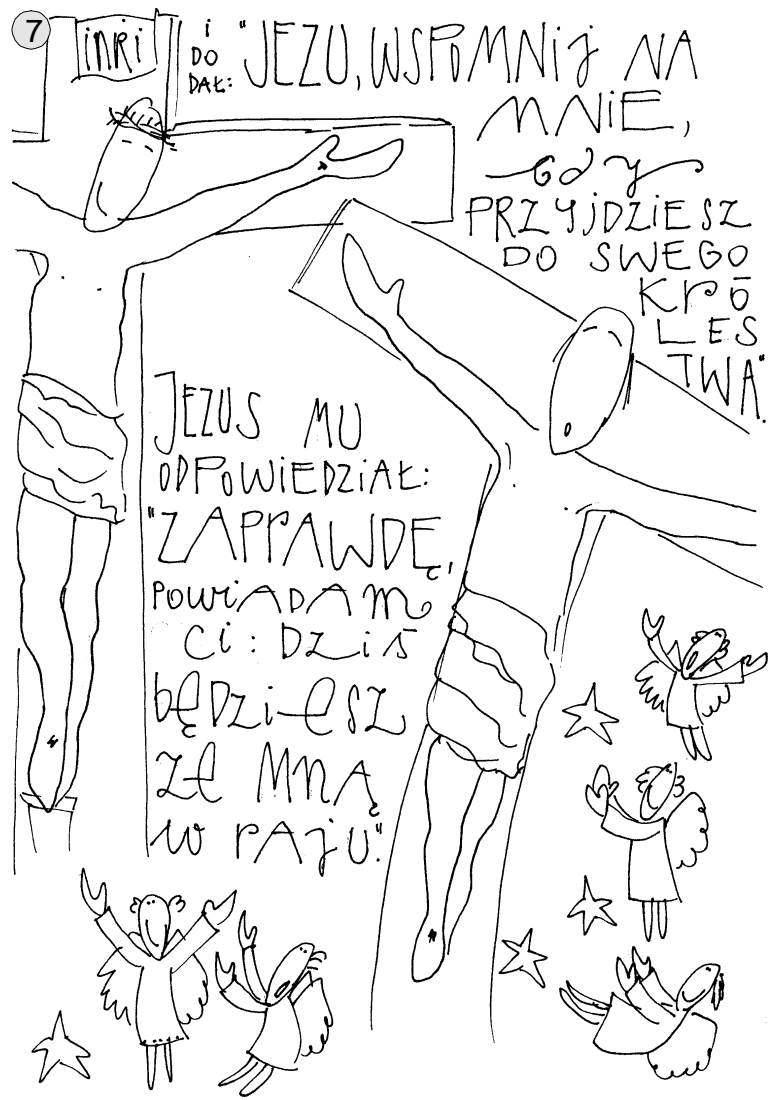 7
inri
i
DO
DAŁ:
"JEZU, WSPOMNij NA
MNiE,
gdy
PRZYjDZiESZ
DO SWEGO
Kró
LES
TWA".
JEZUS MU
ODPOWiEDZiAŁ:
"ZAPrAWDĘ,
POWiADAM
Ci: DZiś
będziesz
ze MNĄ
w rAjU".